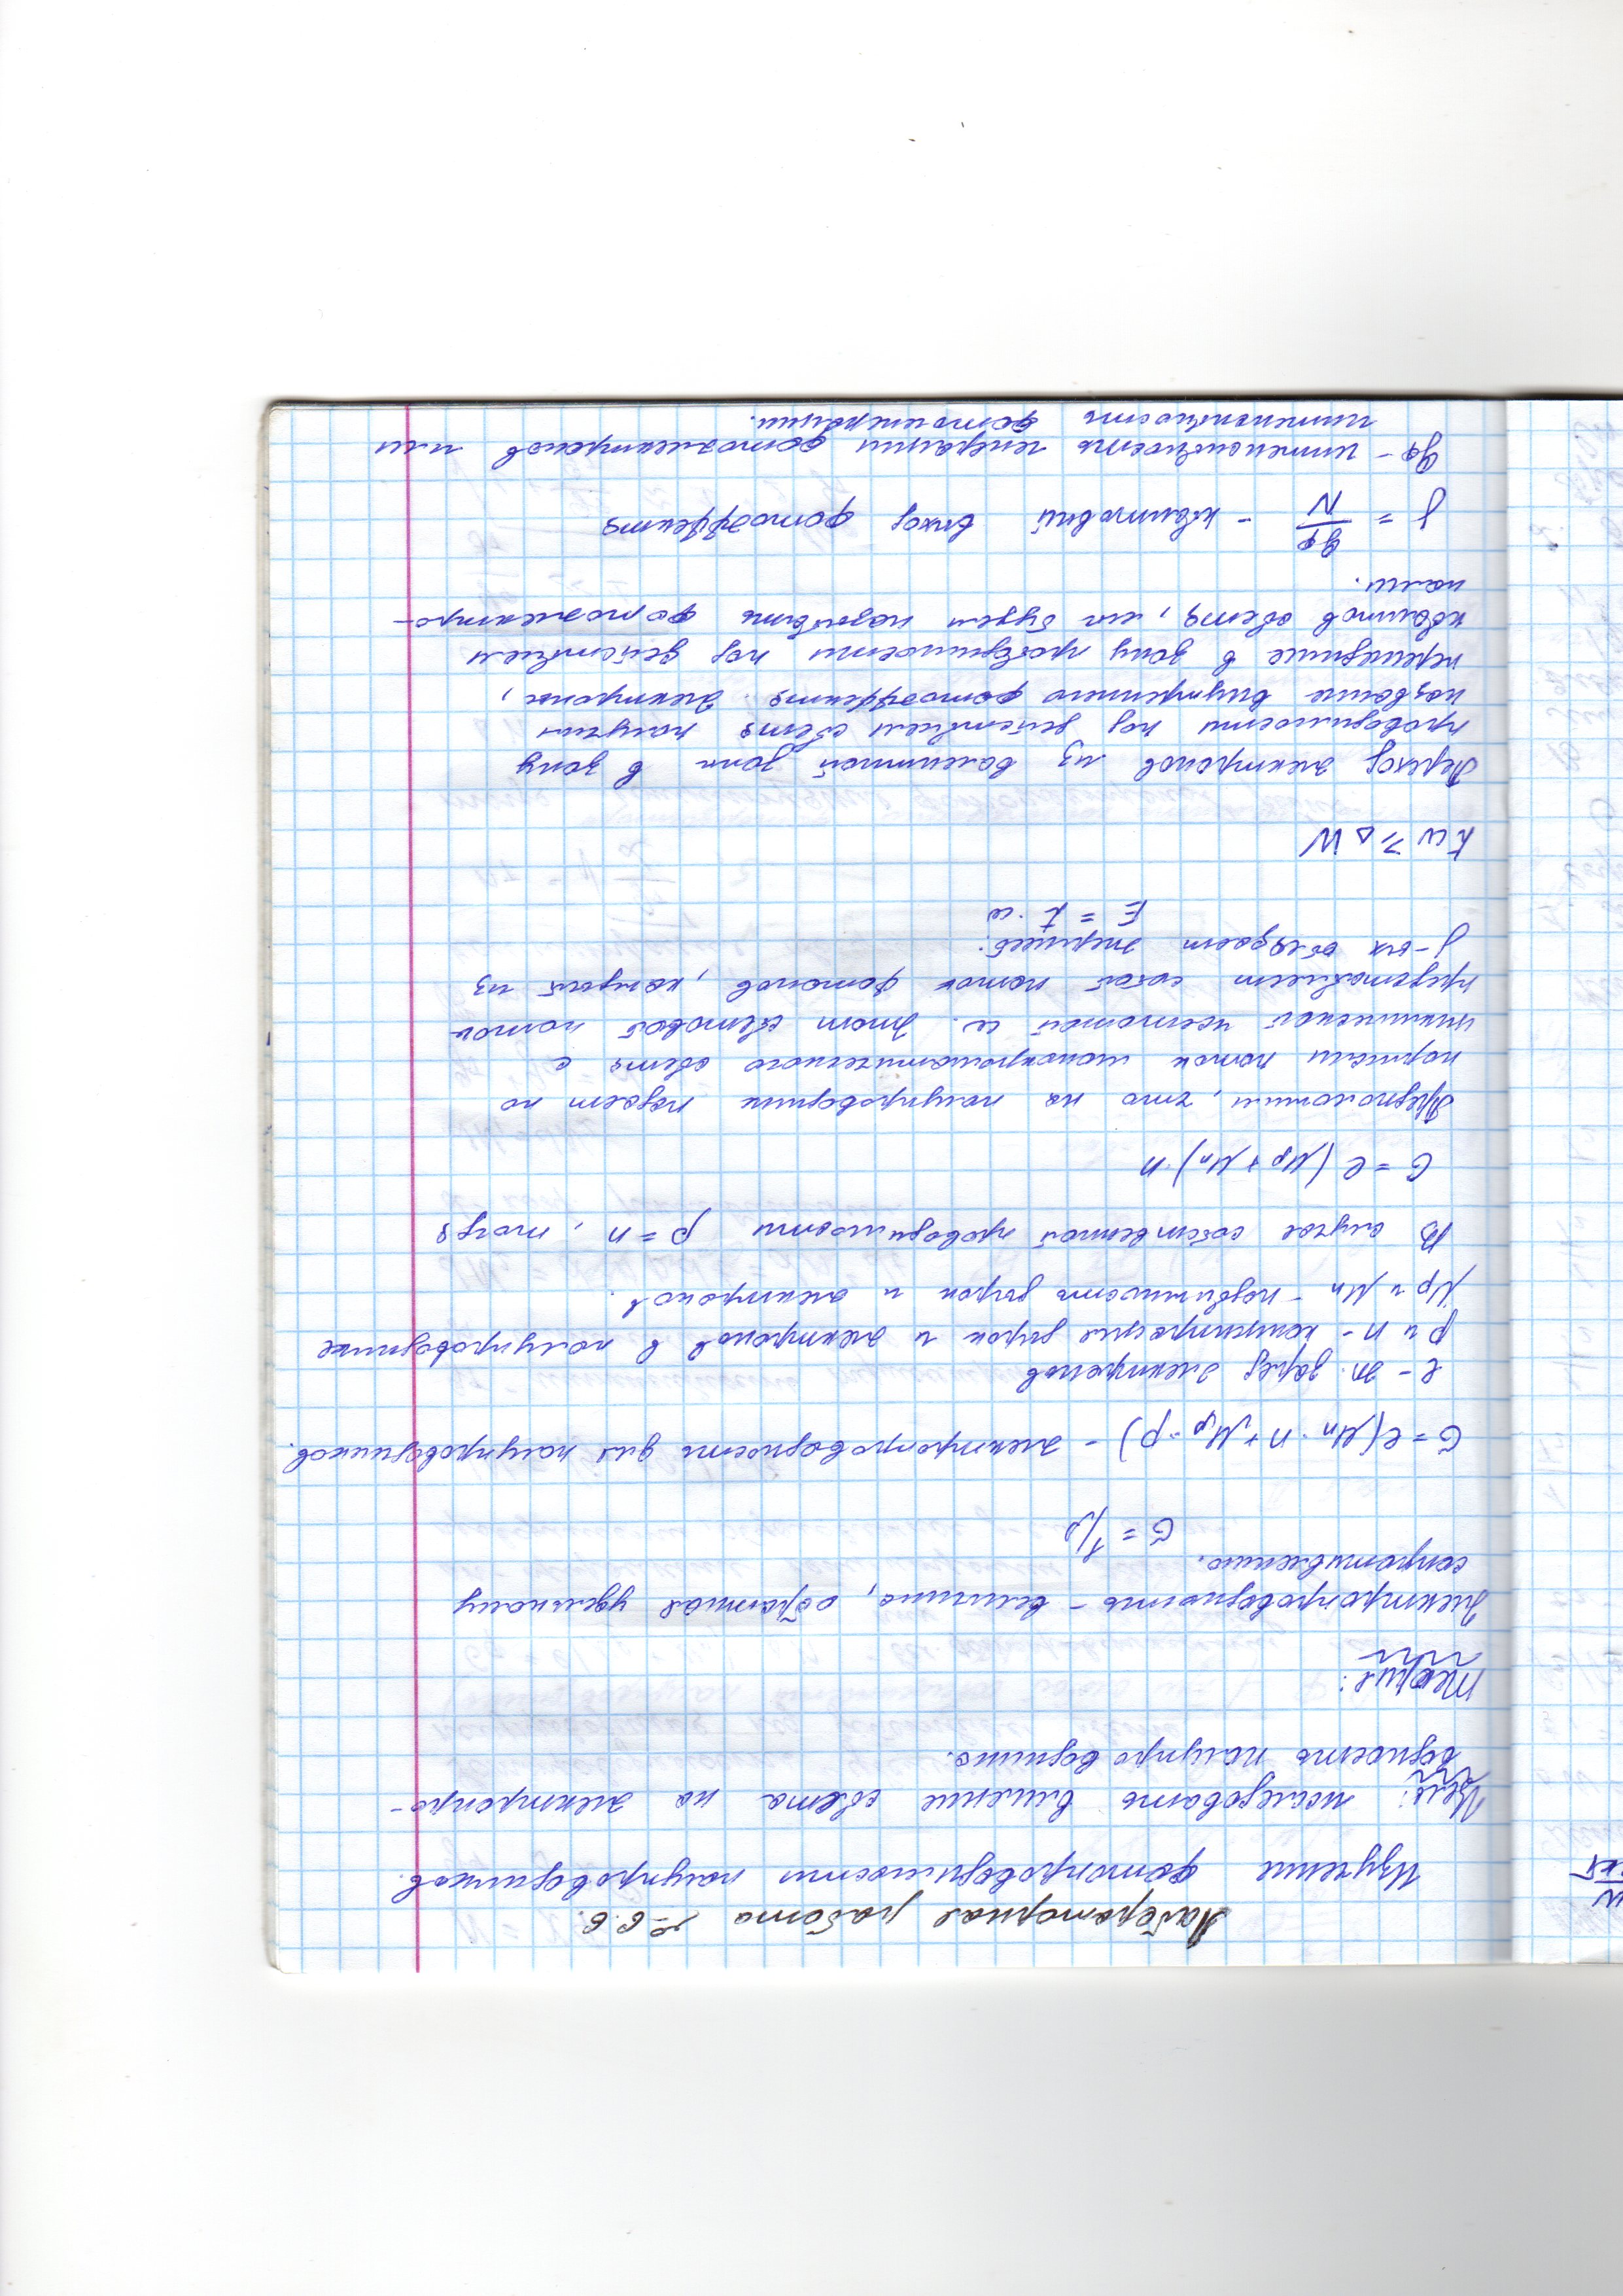 Лабораторная работа № 6.6.
Изучение фотопроводимости полупроводников.
Цель: исследовать влияние света на электропро-
водность полупроводника.
Теория:
Электропроводность - величина, обратная удельному
сопротивлению.
σ = 1/ρ
σ = e(μn · n + μp · p) - электропроводность для полупроводников.
e - эл. заряд электронов
p и n - концентрация дырок и электронов в полупроводнике
μp и μn - подвижность дырок и электронов.
В случае собственной проводимости p = n, тогда
σ = e (μp + μn) · n
Предположим, что на полупроводник падает по
нормали поток монохроматического света с
циклической частотой ω. Этот световой поток
представляет собой поток фотонов, каждый из
-ых обладает энергией:
E = ħ · ω
ħω ≥ ΔW
Переход электронов из валентной зоны в зону
проводимости под действием света получил
название внутреннего фотоэффекта. Электроны,
перешедшие в зону проводимости под действием
квантов света, мы будем называть фотоэлектро-
нами.
γ = gф/N - квантовый выход фотоэффекта
gф - интенсивность генерации фотоэлектронов или
интенсивность фотогенерации.